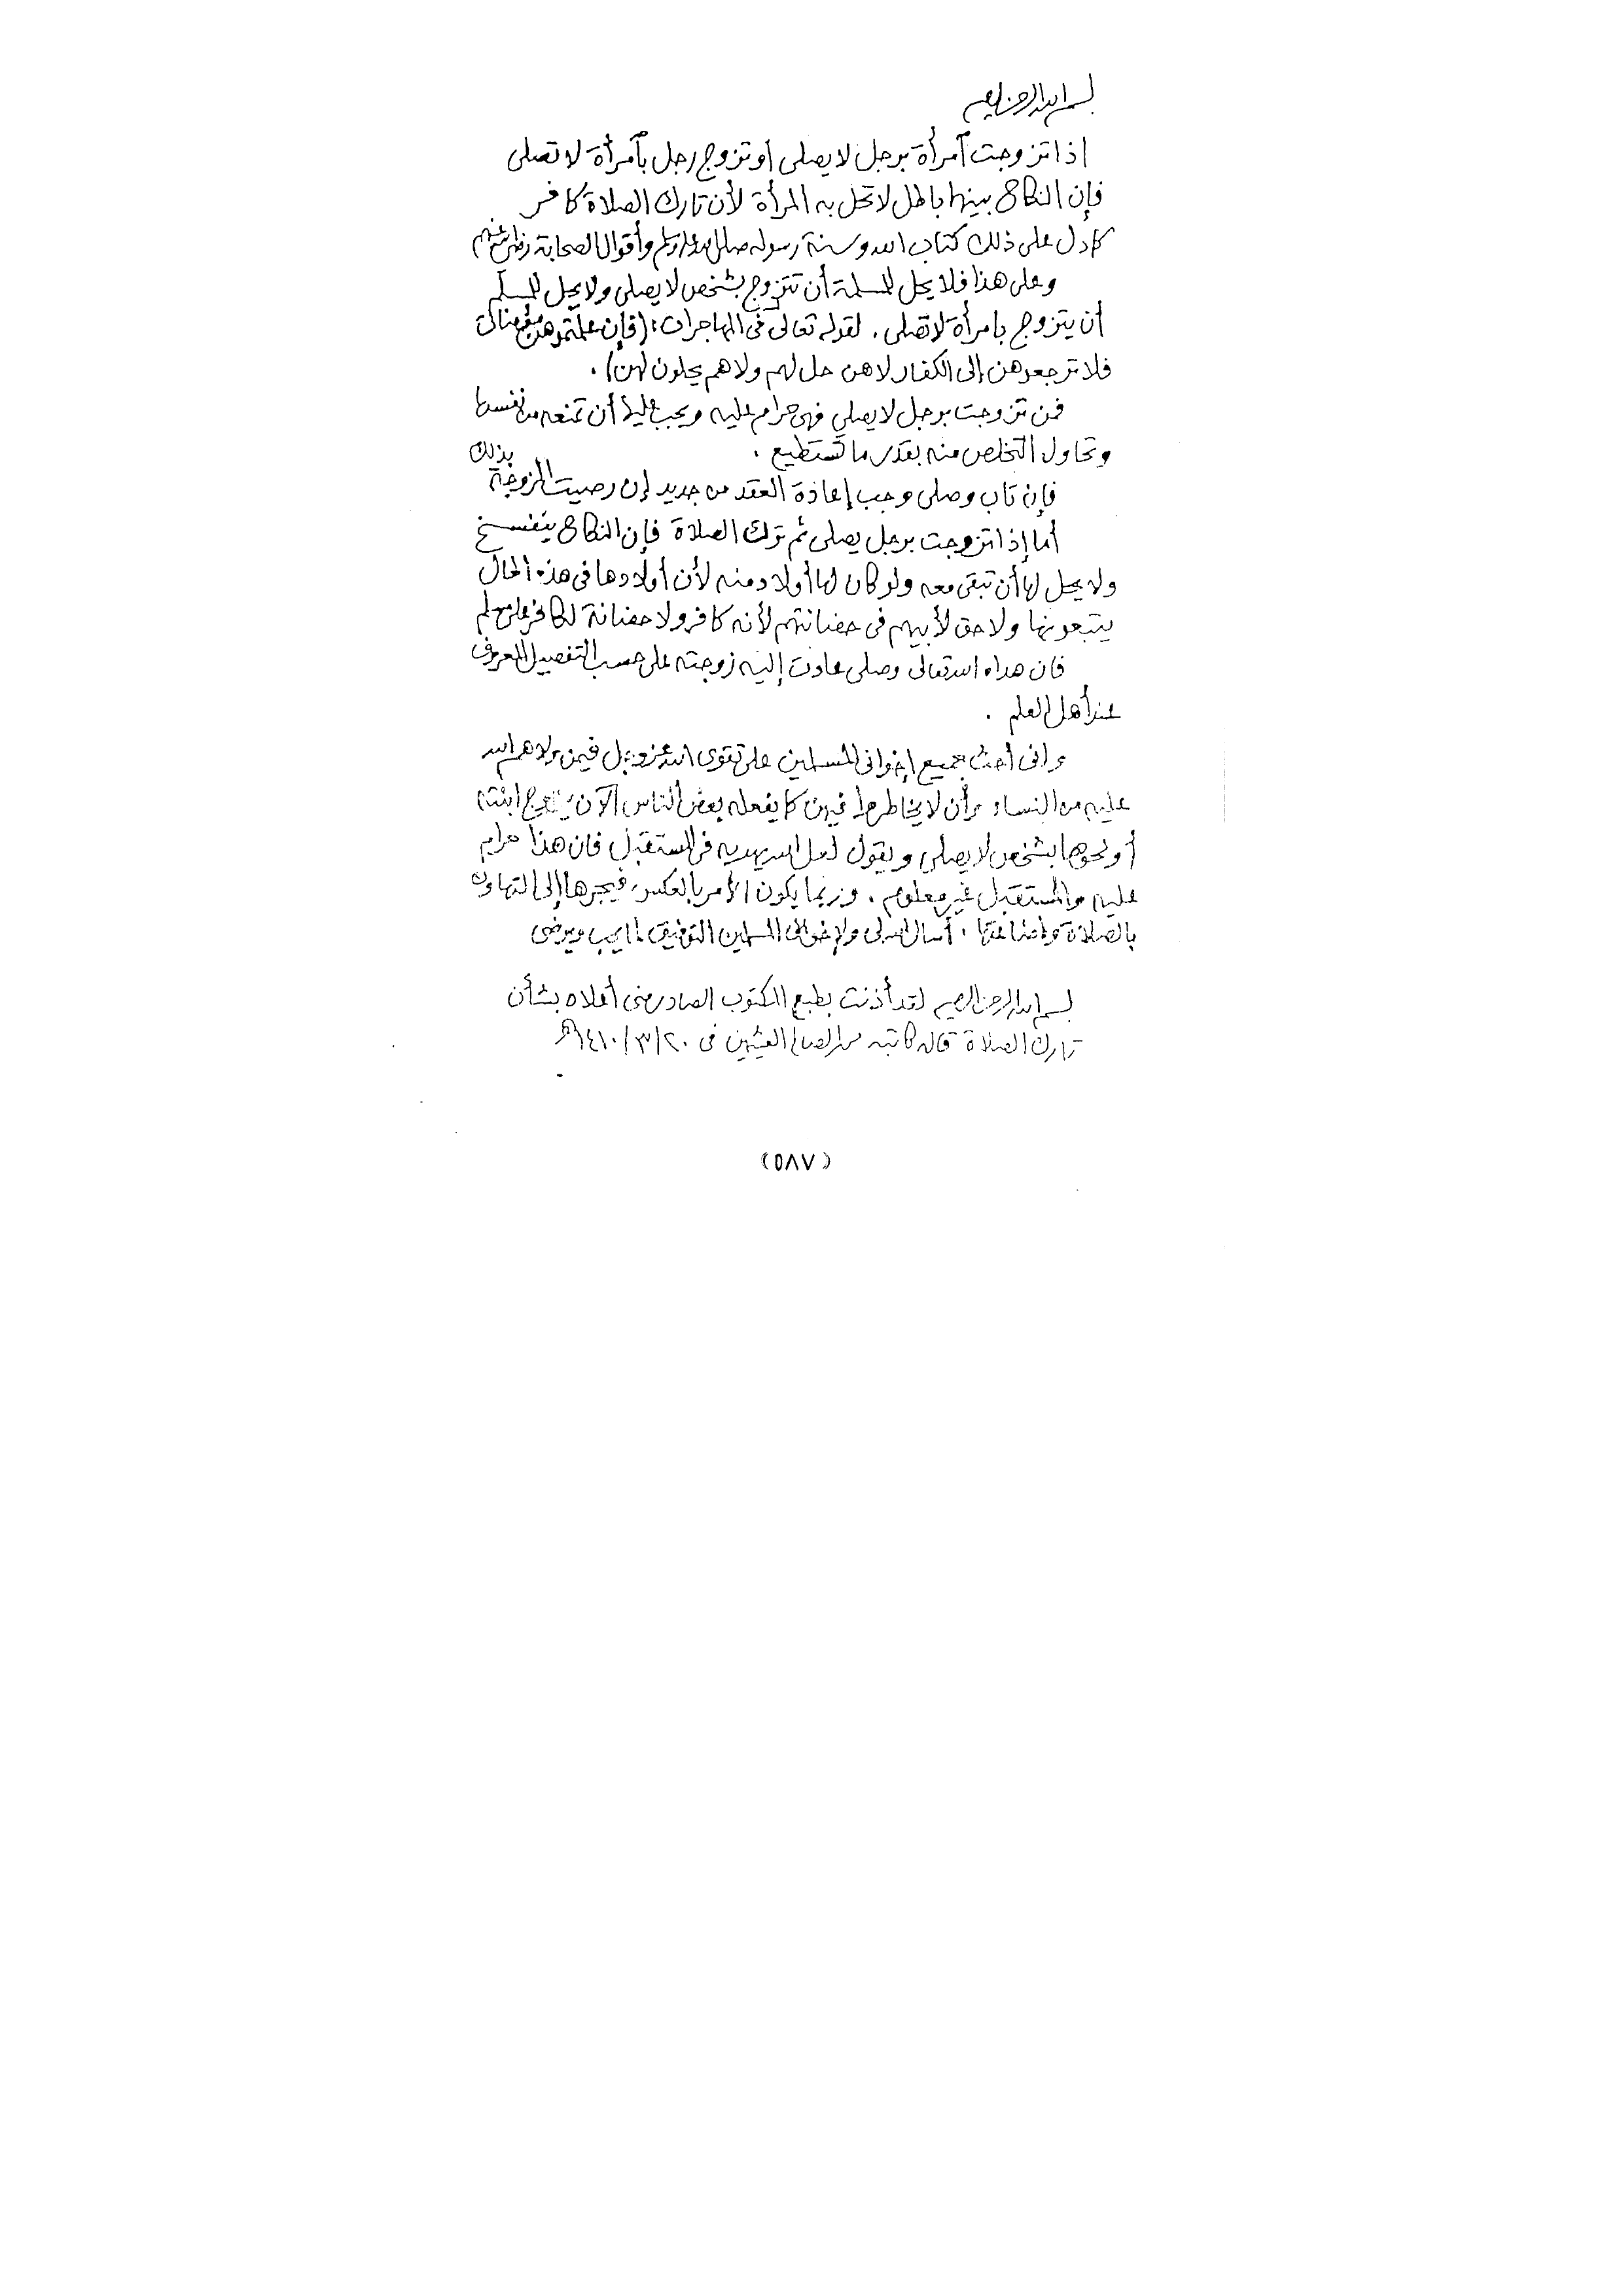 بسم الله الرحمن الرحيم
إذا تزوجت امرأة برجل لا يصلى أو تزوج رجل بامرأة لا تصلى
فإن النكاح بينهما باطل لا تحل به المرأة لأن تارك الصلاة كافر
كما دل على ذلك كتاب الله وسنة رسوله صلى الله عليه وسلم وأقوال الصحابة رضي الله عنهم
وعلى هذا فلا يحل للمسلمة أن تتزوج بشخص لا يصلى ولا يحل للمسلم
أن يتزوج بامرأة لا تصلى . لقوله تعالى فى المهاجرات : (فإن علمتموهن مؤمنات
فلا ترجعوهن إلى الكفار لا هن حل لهم ولا هم يحلون لهن) .
فمن تزوجت برجل لا يصلي فهى حرام عليه ويجب عليها أن تمنعه من نفسها
وتحاول التخلص منه بقدر ما تستطيع .
فإن تاب وصلى وجب إعادة العقد من جديد إن رضيت الزوجة بذلك
أما إذا تزوجت برجل يصلى ثم ترك الصلاة فإن النكاح ينفسخ
ولا يحل لها أن تبقى معه ولو كان لها أولاد منه لأن أولادها فى هذه الحال
يتبعونها ولا حق لأبيهم فى حضانتهم لأنه كافر ولا حضانة لكافر على مسلم
فان هداه الله تعالى وصلى عادت إليه زوجته على حسب التفصيل المعروف
عند أهل العلم .
وانى أحث جميع إخوانى المسلمين على تقوى الله عز وجل فيمن ولاهم الله
عليهم من النساء وأن لا يخاطروا فيهن كما يفعله بعض الناس الآن يزوج ابنته
أو نحوها بشخص لا يصلي ويقول لعل الله يهديه فى المستقبل فان هذا حرام
عليهم والمستقبل غير معلوم . وربما يكون الأمر بالعكس، فيجرها إلى التهاون
بالصلاة وإضاعتها . أسأل الله لى ولإخوانى المسلمين التوفيق لما يحب ويرضى
بسم الله الرحمن الرحيم لقد أذنت بطبع المكتوب الصادر منى أعلاه بشأن
تارك الصلاة قاله كاتبه محمد الصالح العثيمين فى ٢٠/٣/١٤١٠هـ
(٥٨٧)